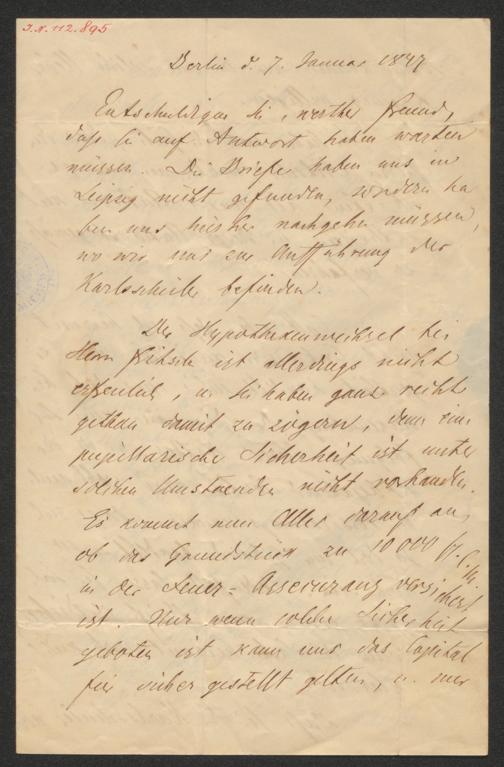 I.N. 112.895
Berlin d. 7. Januar 1847
Entschuldigen Sie, werther Freund,
daß Sie auf Antwort haben warten
müssen. Die Briefe haben uns in
Leipzig nicht gefunden, sondern ha
ben uns hierher nachgehn müssen,
wo wir uns zur Aufführung der
Karlsschüler befinden.
Der Hypothekenwechsel bei
Herrn Fritsch ist allerdings nicht
erfreulich, u. Sie haben ganz recht
gethan damit zu zögern, denn eine
pupillarische Sicherheit ist unter
solchen Umstaenden nicht vorhanden.
Es kommt nun Alles darauf an,
ob das Grundstück zu 10000 fl. C.M.
in der Feuer-Assecuranz versichert
ist. Nur wenn solche Sicherheit
geboten ist kann uns das Capital
für sicher gestellt gelten, u. nur